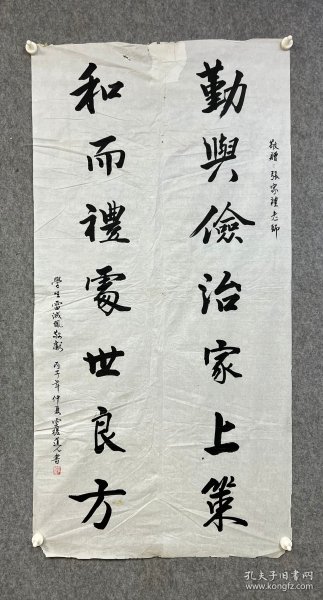 敬贈 張家禮老師
勤與儉治家上策
和而禮處世良方
學生雷誠國敬獻 丙子年仲夏 道人書
孔夫子旧书网